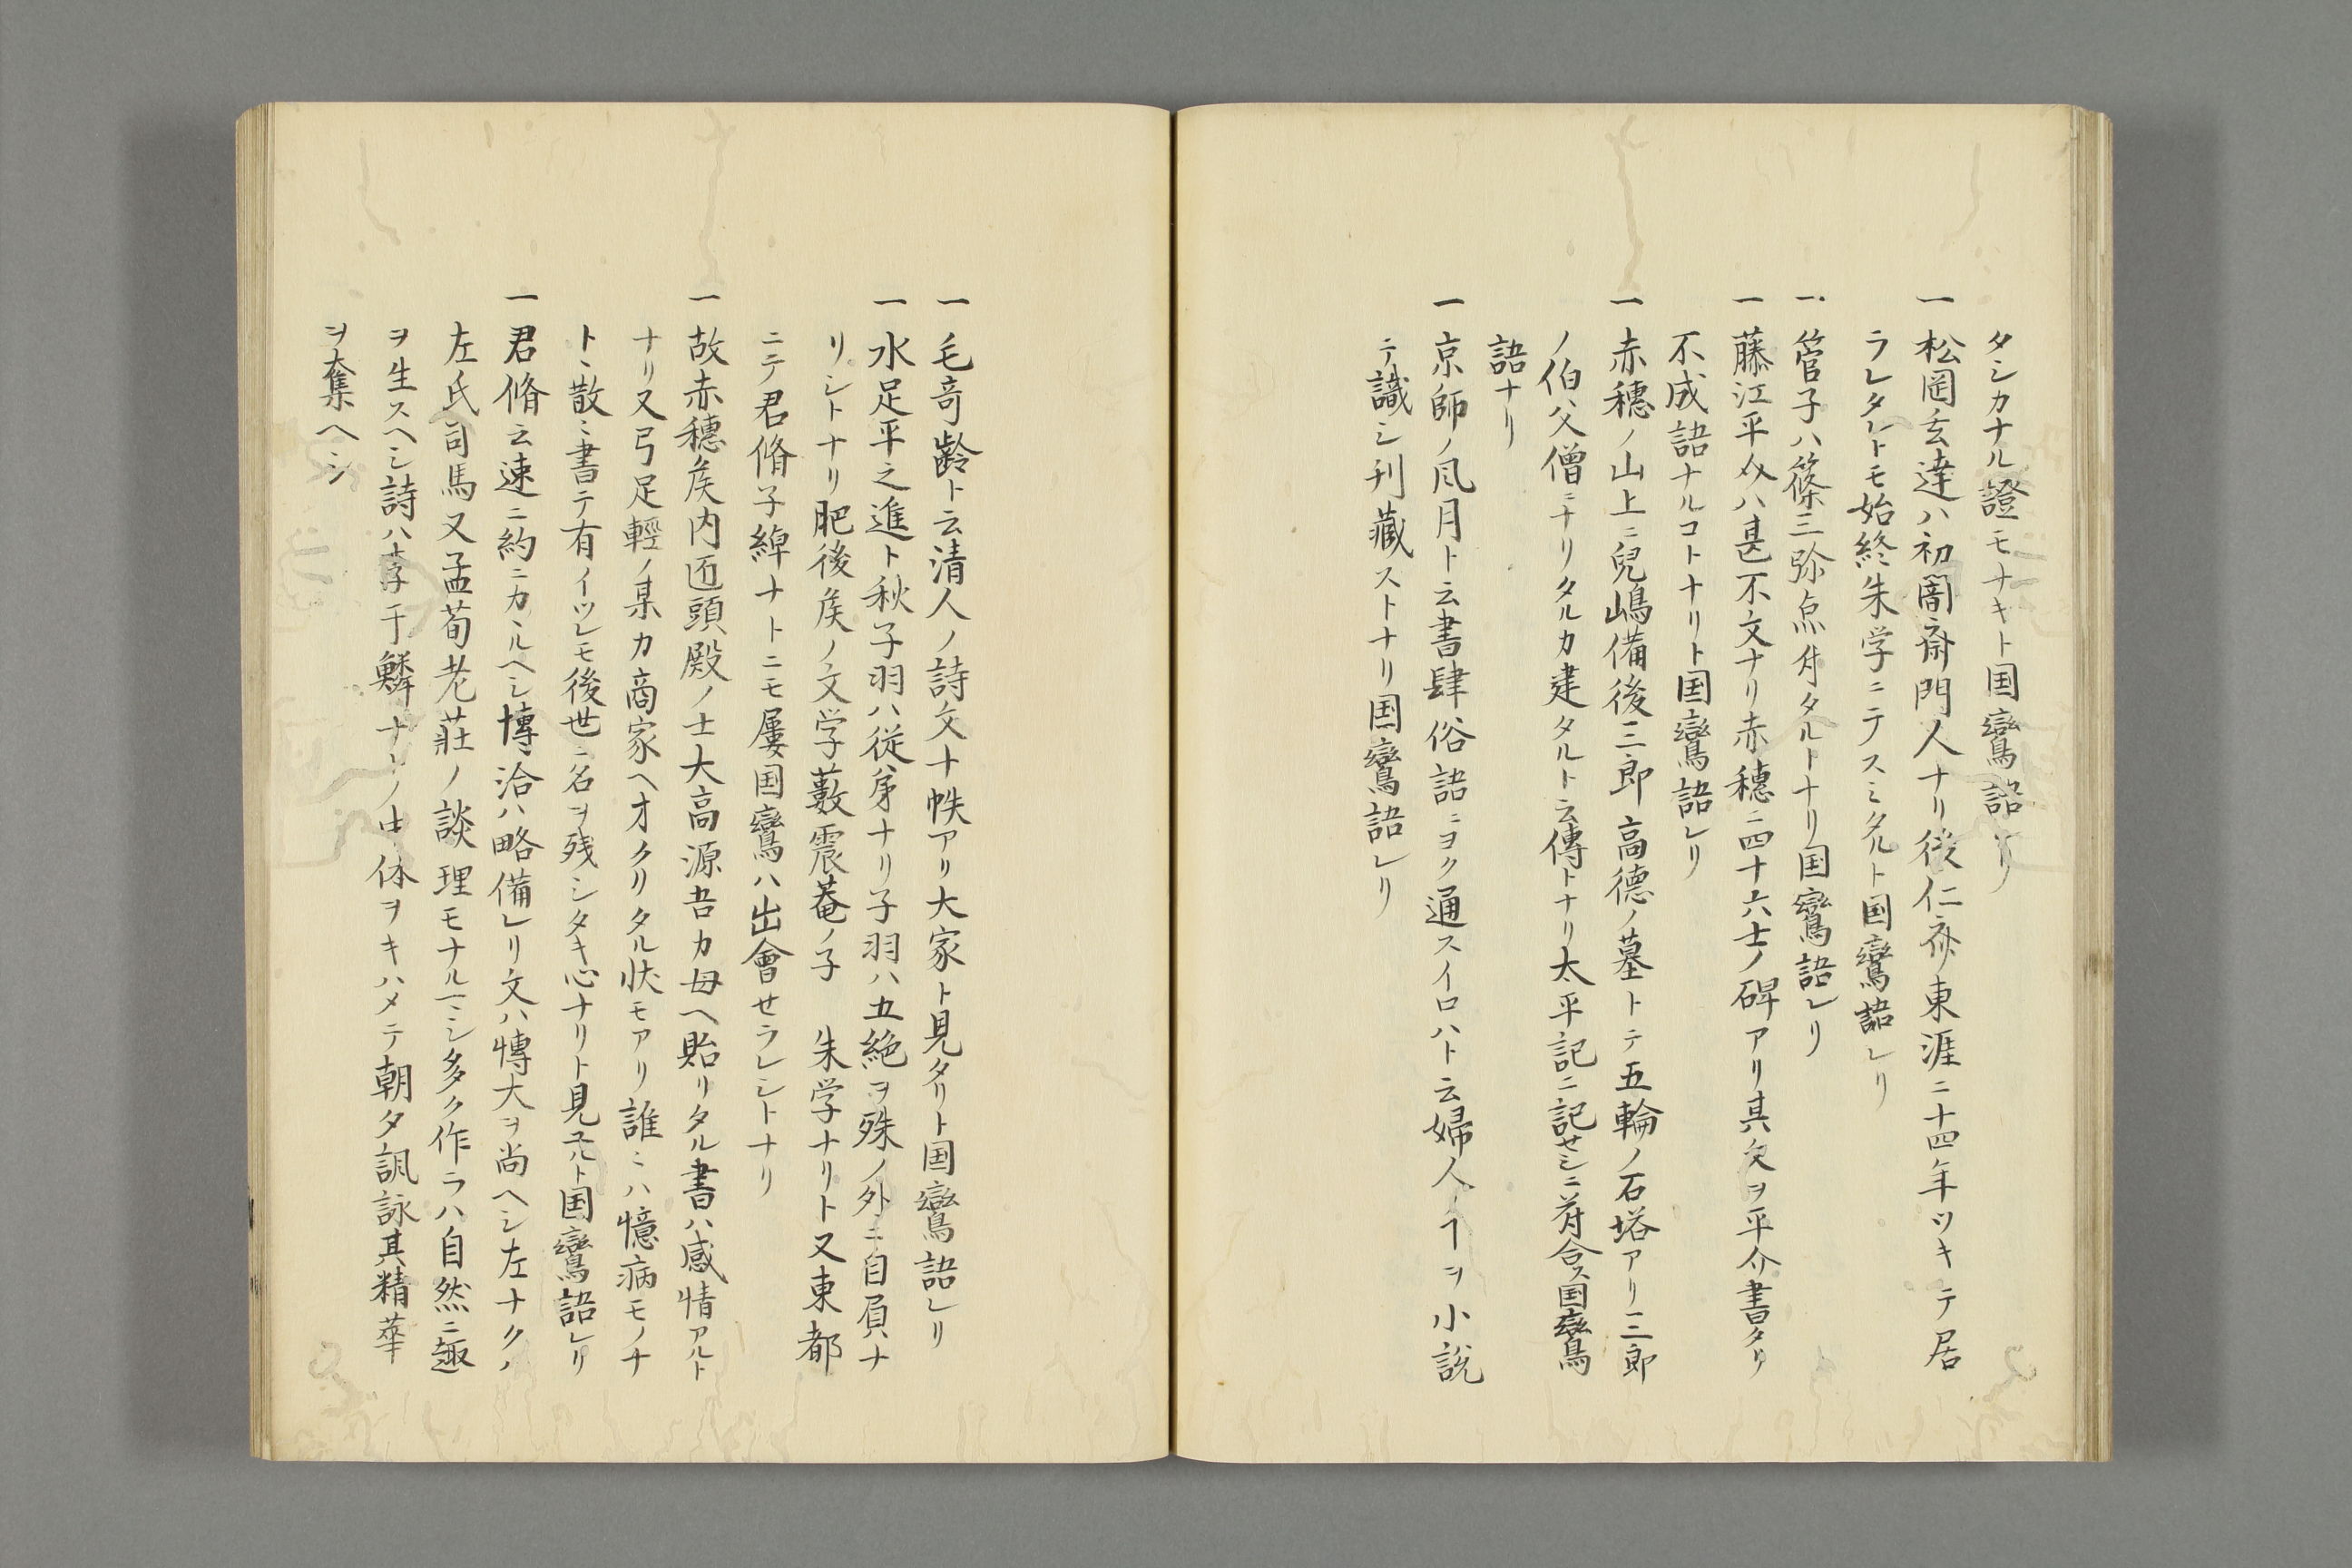 タシカナル證モナキト国鸞語レリ
一 松岡玄達ハ初闇斎門人ナリ後仁斎東涯ニ十四年ツキテ居
ラレタレトモ始終朱学ニテスミタルト国鸞語レリ
一 管子ハ篠三弥点付タルトナリ国鸞語レリ
一 藤江平介ハ甚不文ナリ赤穂ニ四十六士ノ碑アリ其文ヲ平介書タリ
不成語ナルコトナリト国鸞語レリ
一 赤穂ノ山上ニ兒嶋備後三郎高徳ノ墓トテ五輪ノ石塔アリ三郎
ノ伯父僧ニナリタルカ建タルト云傳トナリ太平記ニ記セシニ符合ス国鸞
語ナリ
一 京師ノ風月ト云書肆俗語ニヨク通スイロハト云婦人ノヿヲ小説
ニテ識シ刊藏ストナリ国鸞語レリ
一 毛奇齢ト云清人ノ詩文十帙アリ大家ト見タリト国鸞語レリ
一 水足平之進ト秋子羽ハ従弟ナリ子羽ハ五絶ヲ殊ノ外ニ自負ナ
リシトナリ肥後矦ノ文学藪震菴ノ子 朱学ナリト又東都
ニテ君脩子綽ナトニモ屢国鸞ハ出會セラレシトナリ
一 故赤穗矦内匠頭殿ノ士大高源吾カ母ヘ貽リタル書ハ感情アルト
ナリ又弓足輕ノ某カ商家ヘオクリタル状モアリ誰ニハ憶病モノナ
トヽ散ニ書テ有イツレモ後世ニ名ヲ残シタキ心ナリト見ユルト国鸞語レリ
一 君脩云速ニ約ニカヽルヘシ博洽ハ略備レリ文ハ博大ヲ尚ヘシ左ナクハ
左氏司馬又孟荀老莊ノ談理モナルヘシ多ク作ラハ自然ニ趣
ヲ生スヘシ詩ハ李于鱗ナトノ中体ヲキハメテ朝夕諷詠其精華
ヲ奪ヘシ